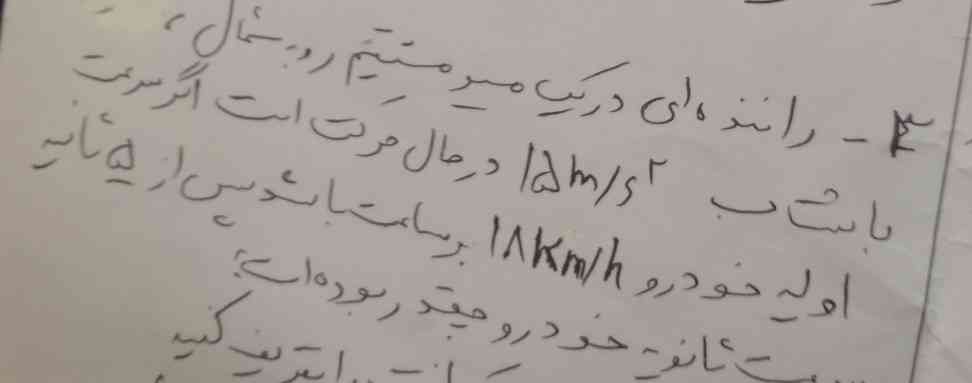 ۴ - راننده ای در یک مسیر مستقیم رو به شمال،
با شتاب ۱۵m/s۲ در حال حرکت است اگر سرعت
اولیه خودرو ۱۸km/h بر ساعت باشد پس از ۵ ثانیه
ثانویه خودرو چقدر بوده است؟
را تعریف کنید